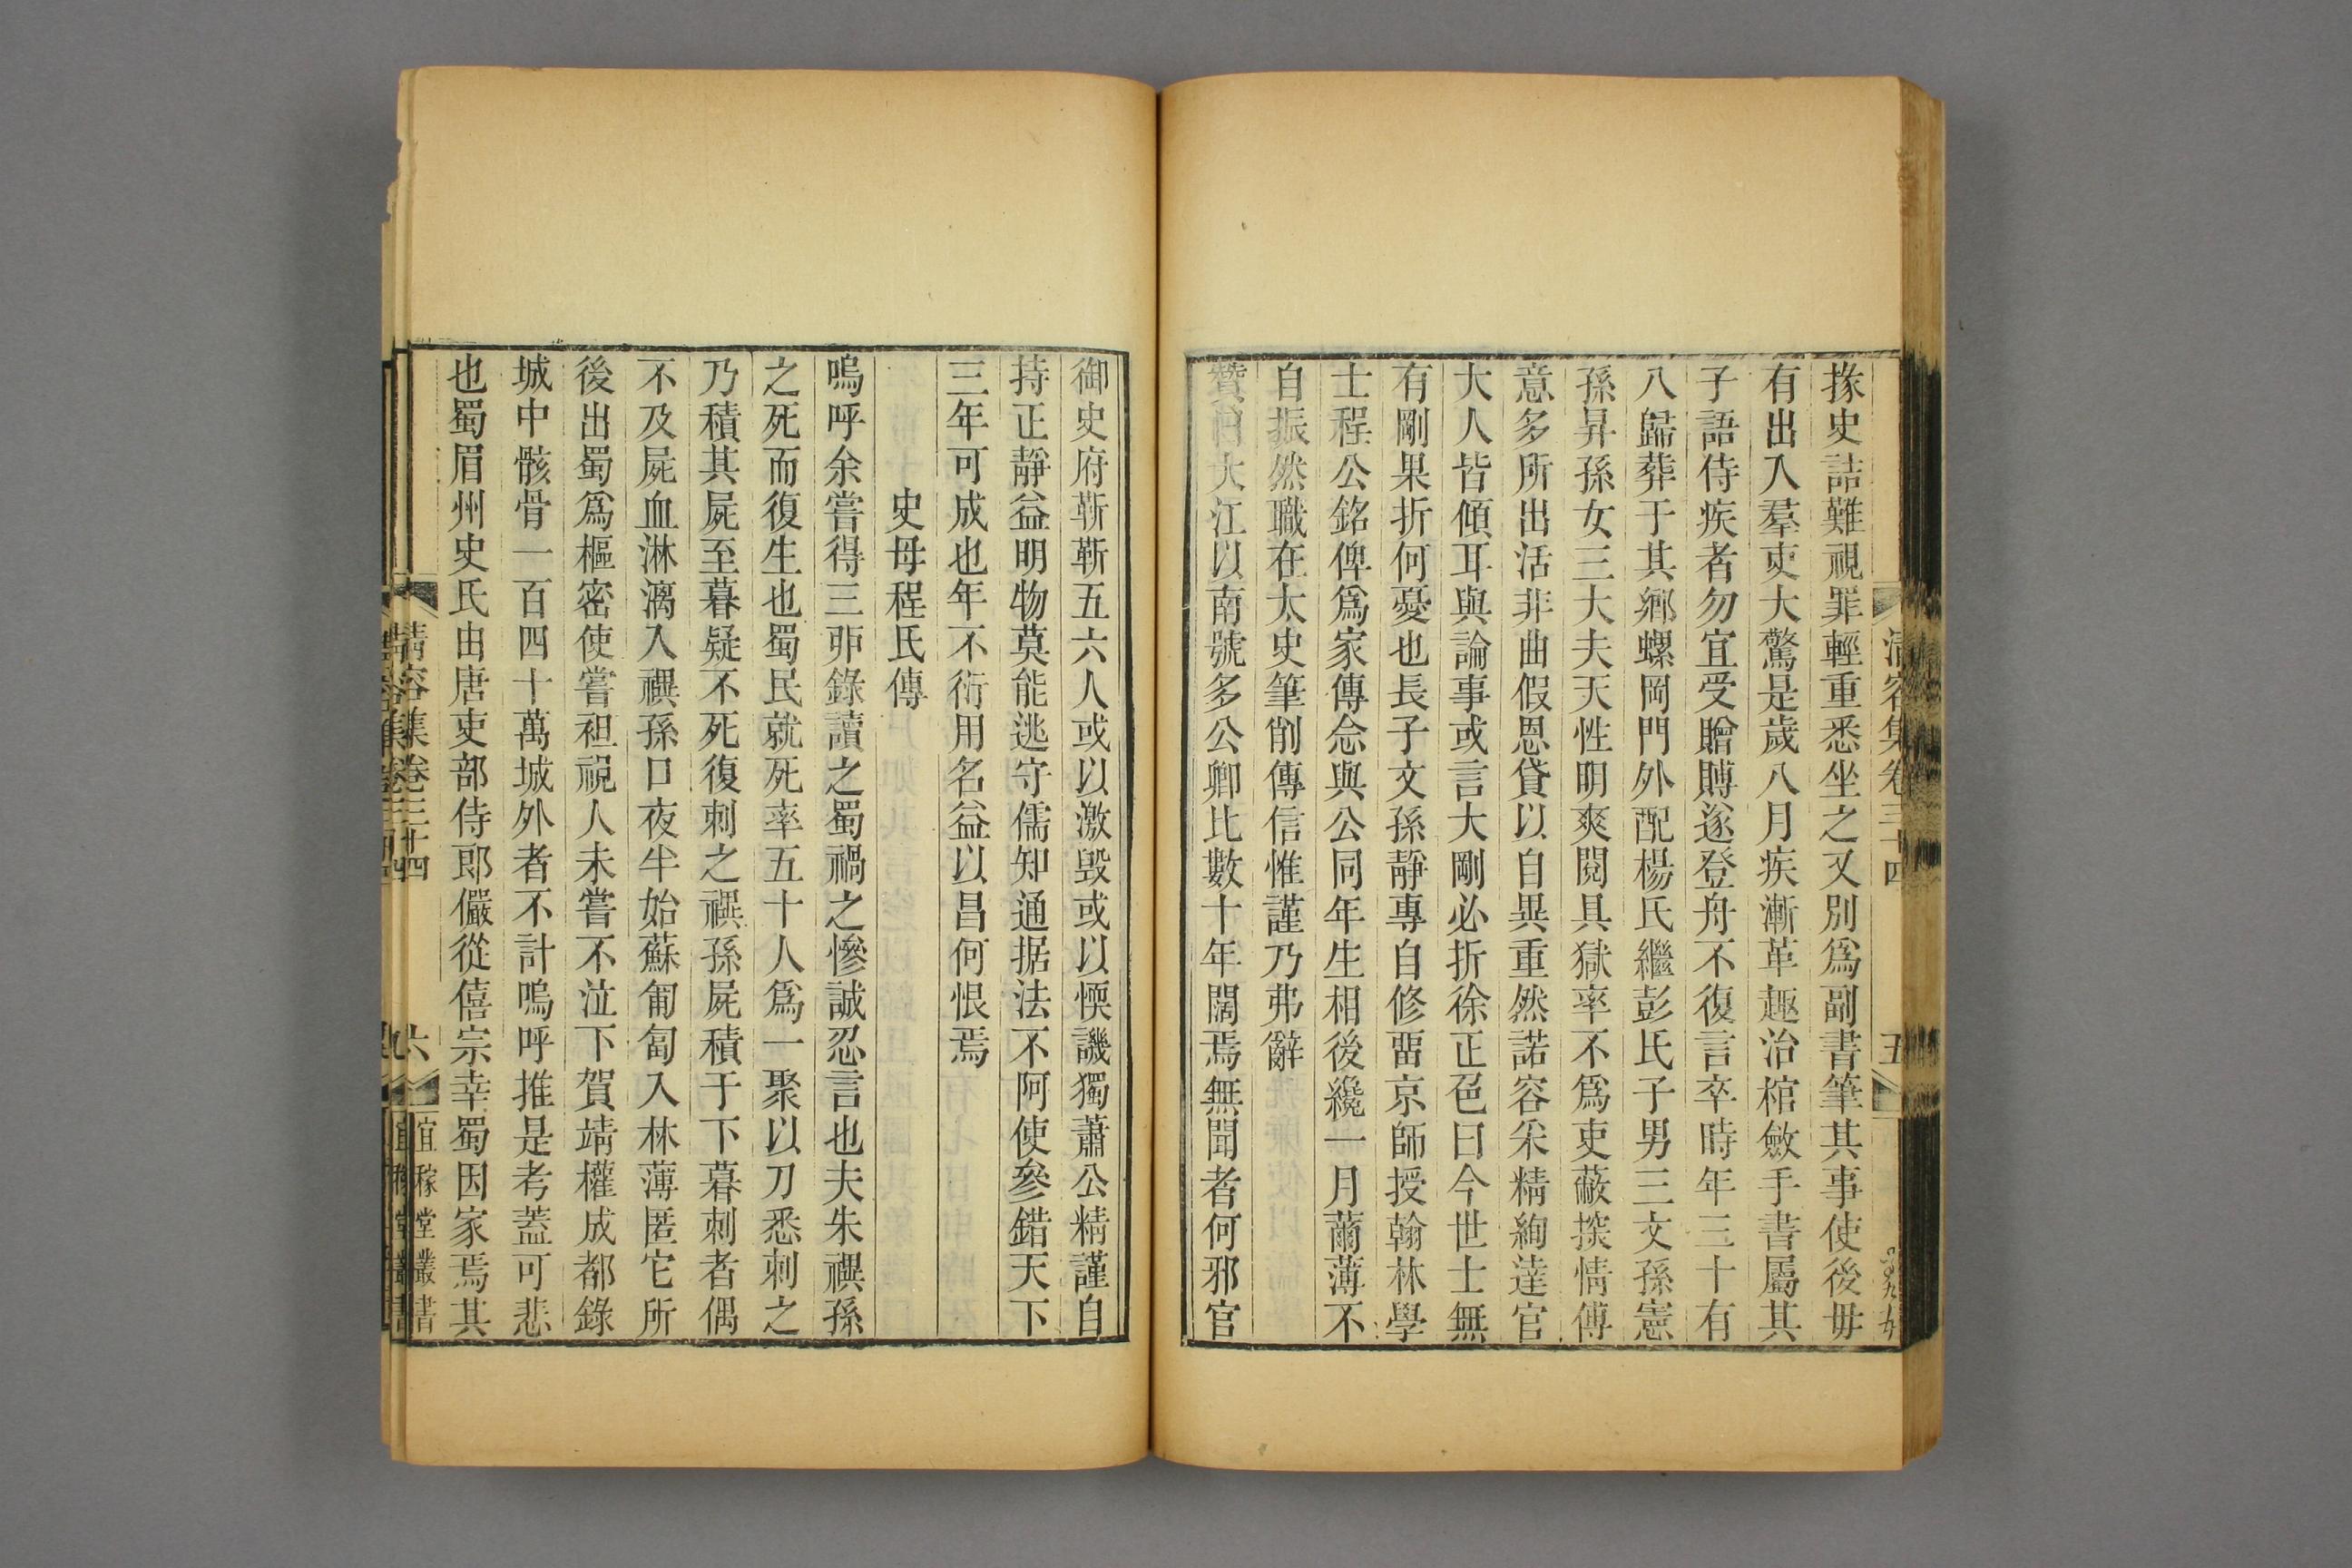 清容集卷三十四
五
掾史詰難視罪輕重悉坐之又別爲副書筆其事使後毋
有出入羣吏大驚是歲八月疾漸革趣治棺斂手書屬其
子語侍疾者勿宜受贈賻遂登舟不復言卒時年三十有
八歸葬于其鄉螺岡門外配楊氏繼彭氏子男三文孫憲
孫昇孫女三大夫天性明爽閱具獄率不爲吏蔽探情傅
意多所出活非曲假恩貸以自異重然諾容采精絢達官
大人皆傾耳與論事或言大剛必折徐正色曰今世士無
有剛果折何憂也長子文孫靜專自修留京師授翰林學
士程公銘俾爲家傳念與公同年生相後纔一月薾薄不
自振然職在太史筆削傳信惟謹乃弗辭
贊曰大江以南號多公卿比數十年闊焉無聞者何邪官
御史府靳靳五六人或以激毀或以愞譏獨蕭公精謹自
持正靜益明物莫能逃守儒知通据法不阿使參錯天下
三年可成也年不衍用名益以昌何恨焉
史母程氏傳
嗚呼余嘗得三卯錄讀之蜀禍之慘誠忍言也夫朱禩孫
之死而復生也蜀民就死率五十人爲一聚以刀悉刺之
乃積其屍至暮疑不死復刺之禩孫屍積于下暮刺者偶
不及屍血淋漓入禩孫口夜半始蘇匍匐入林薄匿它所
後出蜀爲樞密使嘗袒視人未嘗不泣下賀靖權成都錄
城中骸骨一百四十萬城外者不計嗚呼推是考蓋可悲
也蜀眉州史氏由唐吏部侍郎儼從僖宗幸蜀因家焉其
清容集卷三十四
六
宜稼堂叢書